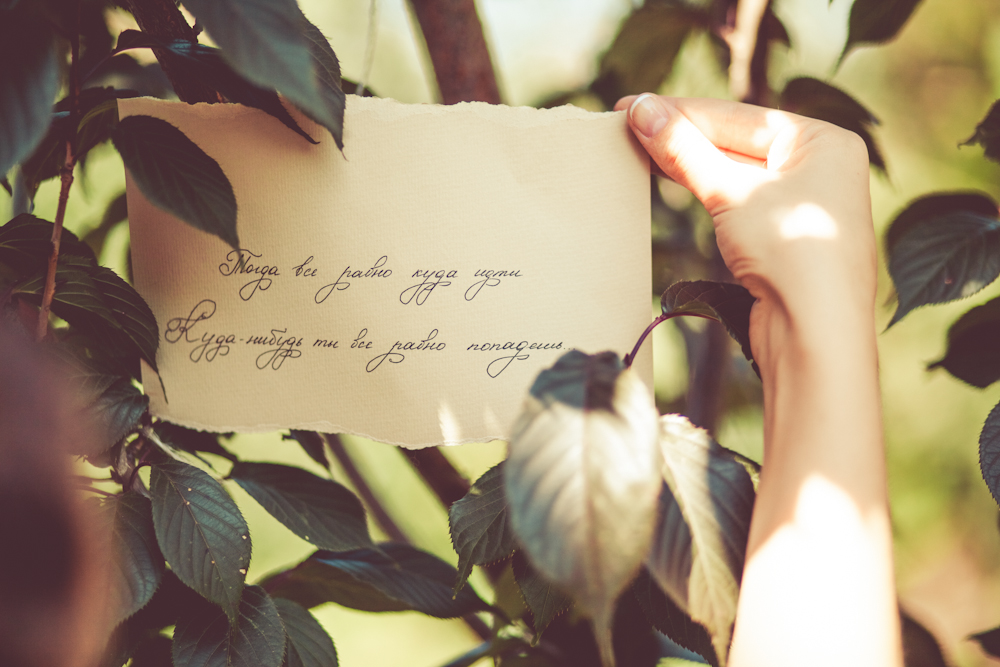 Тогда все равно куда идти
Куда-нибудь ты все равно попадешь.